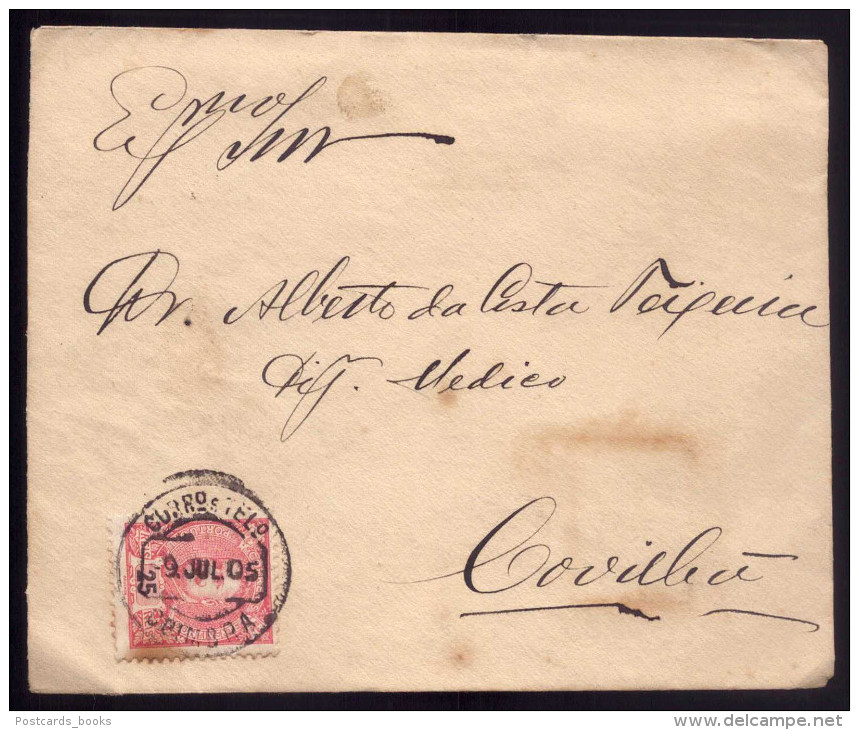 Exmo
Snr
Dr. Alberto da Costa Teixeira
Dig. Medico
Covilhã
CORROS TELO
9 JUL 05
25
Postcards_books
www.delcampe.net